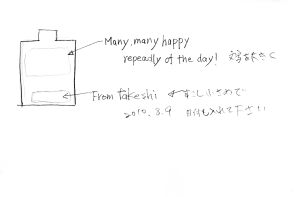 Many, many happy
repeadly of the day! 文字大きく
From takeshi すこし小さめで
2010.3.9 日付も入れて下さい